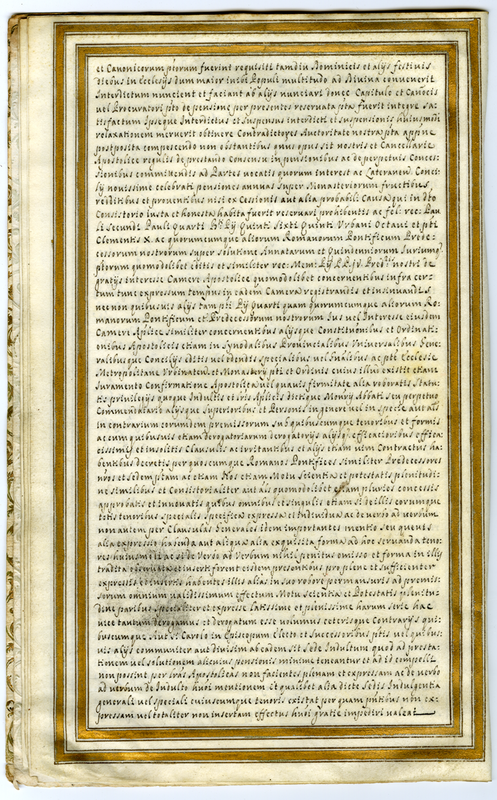 et Canonicorum ptorum fuerint requisiti tamdiu Dominicis et alijs festiuis
diebus in Ecclesijs dum maior inibi Populi multitudo ad Diuina conuenerit
Interdictum nuncient et faciant ab alijs nunciari donec Capitulo et Canocis
uel Procuratori pto de pensione per presentes reseruata pta fuerit integre sa=
tisfactum Ipseque Interdictus et Suspensus interdicti et suspensionis huiusmodi
relaxationem meruerit obtinere Contradictores Auctoritate nostra pta appne
postposita compescendo non obstantibus quus opus sit nostris et Cancellarie
Apostolice regulis de prestando Consensu in pensionibus ac de perpetuis Conces=
sionibus committendis ad Partes uocatis quorum interest ac Lateranen Conci=
lij nouissime celebrati pensiones annuas super Monasteriorum fructibus,
redditibus et prouentibus nisi ex Cessionis aut alia probabili Causa qui in dto
Consistorio iusta et honesta habita fuerit reseruari prohibentis ac fel: rec: Pau
li Secundi Pauli Quarti Pij Quinti Sixti Quinti Urbani Octaui et pti
Clementis X. ac quorumcumque aliorum Romanorum Pontificum Prede=
cessorum nostrorum super solutione Annatarum et Quindenniorum Iuriumque
ptorum quomodolibet editis et similiter rec: Mem: Pij PP. iv. Pred.ris nostri de
gratijs interesse Camere Apostolice quomodolibet concernentibus infra cer=
tum tunc expressum tempus in eadem Camera registrandis et insinuandis
nec non quibusuis alijs tam pti Pij Quarti quam quorumcumque aliorum Ro=
manorum Pontificum et Predecessorum nostrorum Ius uel Interesse eiusdem
Camere Aplice similiter concernentibus alijsque Constitutionibus et Ordinati=
onibus Apostolicis etiam in Synodalibus Prouincialibus Uniuersalibus Gene=
ralibusque Concilijs editis uel edendis specialibus uel generalibus ac pte Ecclesie
Metropolitane Urbinaten et Monasterij pti et Ordinis cuius illud existit etiam
Iuramento Confirmatione Apostolica uel quauis firmitate alia roboratis Statu=
tis priuilegijs quoque Indultis et Lris Aplicis dictisque Monrij Abbati seu perpetuo
Commendatario alijsque Superioribus et Personis in genere uel in specie aut als
in contrarium eorumdem premissorum sub quibuscumque tenoribus et formis
ac cum quibusuis etiam derogatoriarum derogatorijs alijsque efficacioribus effica=
cissimis et insolitis Clausulis ac irritantibus et alijs etiam uim Contractus ha=
bentibus decretis per quoscumque Romanos Pontifices similiter Predecessores
nros et Sedem ptam ac etiam Nos etiam Motu Scientia et potestatis plenitudi=
ne similibus et Consistorialiter aut als quomodolibet etiam pluries concessis
approbatis et innouatis quibus omnibus et singulis etiam si de illis eorumque
totis tenoribus specialis specifica expressa et Indiuidua ac de uerbo ad uerbum
non autem per Clausulas Generales idem importantes mentio seu queuis
alia expressio habenda aut aliqua alia exquisita forma ad hoc seruanda teno=
res huiusmodi ac si de Verbo ad Verbum nihil penitus omisso et forma in illis
tradita obseruata et inserti forent eisdem presentibus pro plene et sufficienter
expressis et insertis habentes illis alias in suo robore permansuris ad premis=
sorum omnium ualidissimum effectum Motu Scientia et Potestatis plenitu=
dine paribus specialiter et expresse latissime et plenissime harum serie hac
uice tantum derogamus et derogatum esse uolumus ceterisque Contrarijs qui=
buscumque Aut si Cardio in Episcopum Electo et Successoribus ptis uel quibus=
uis alijs communiter aut diuisim ab eadem sit Sede Indultum quod ad presta=
tionem uel solutionem alicuius pensionis minime teneantur et ad id compelli
non possint per Lras Apostolicas non facientes plenam et expressam ac de uerbo
ad uerbum de Indulto huiusmodi mentionem et qualibet alia dicte Sedis Indulgentia
generali uel speciali cuiuscumque tenoris existat per quam pntibus non ex=
pressam uel totaliter non insertam effectus huiusmodi gratie impediri ualeat